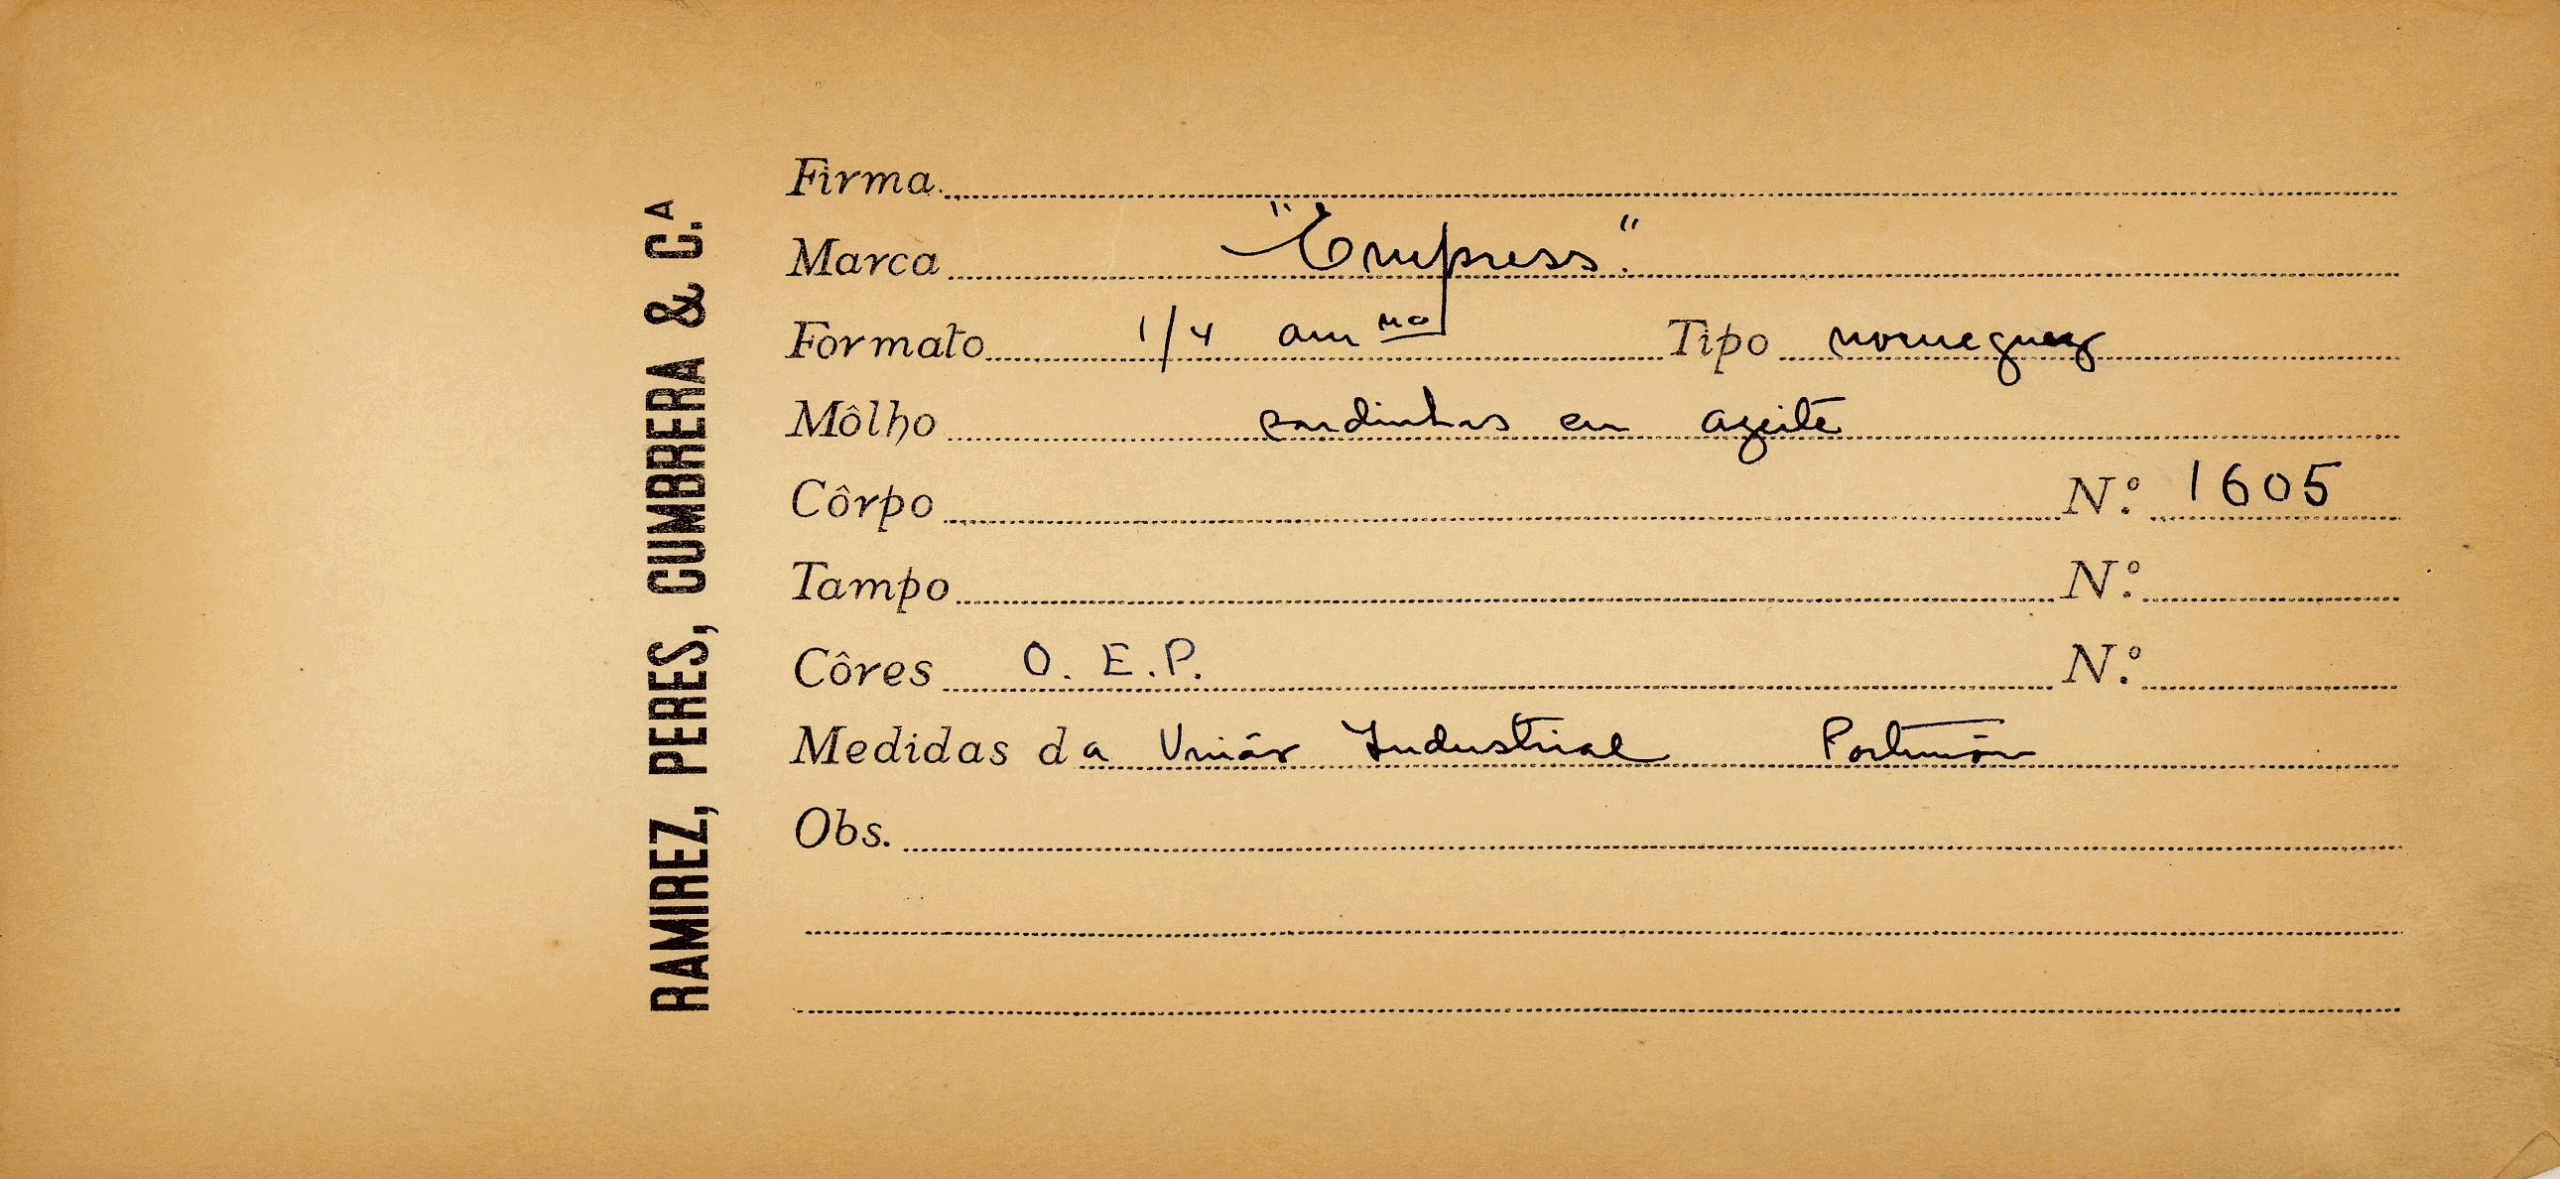 RAMIREZ, PERES, CUMBRERA & C.A
Firma
Marca "Empress"
Formato 1/4 am no Tipo norueguez
Môlho sardinhas em azeite
Côrpo N.º 1605
Tampo N.º
Côres O. E. P. N.º
Medidas da União Industrial Portimão
Obs.